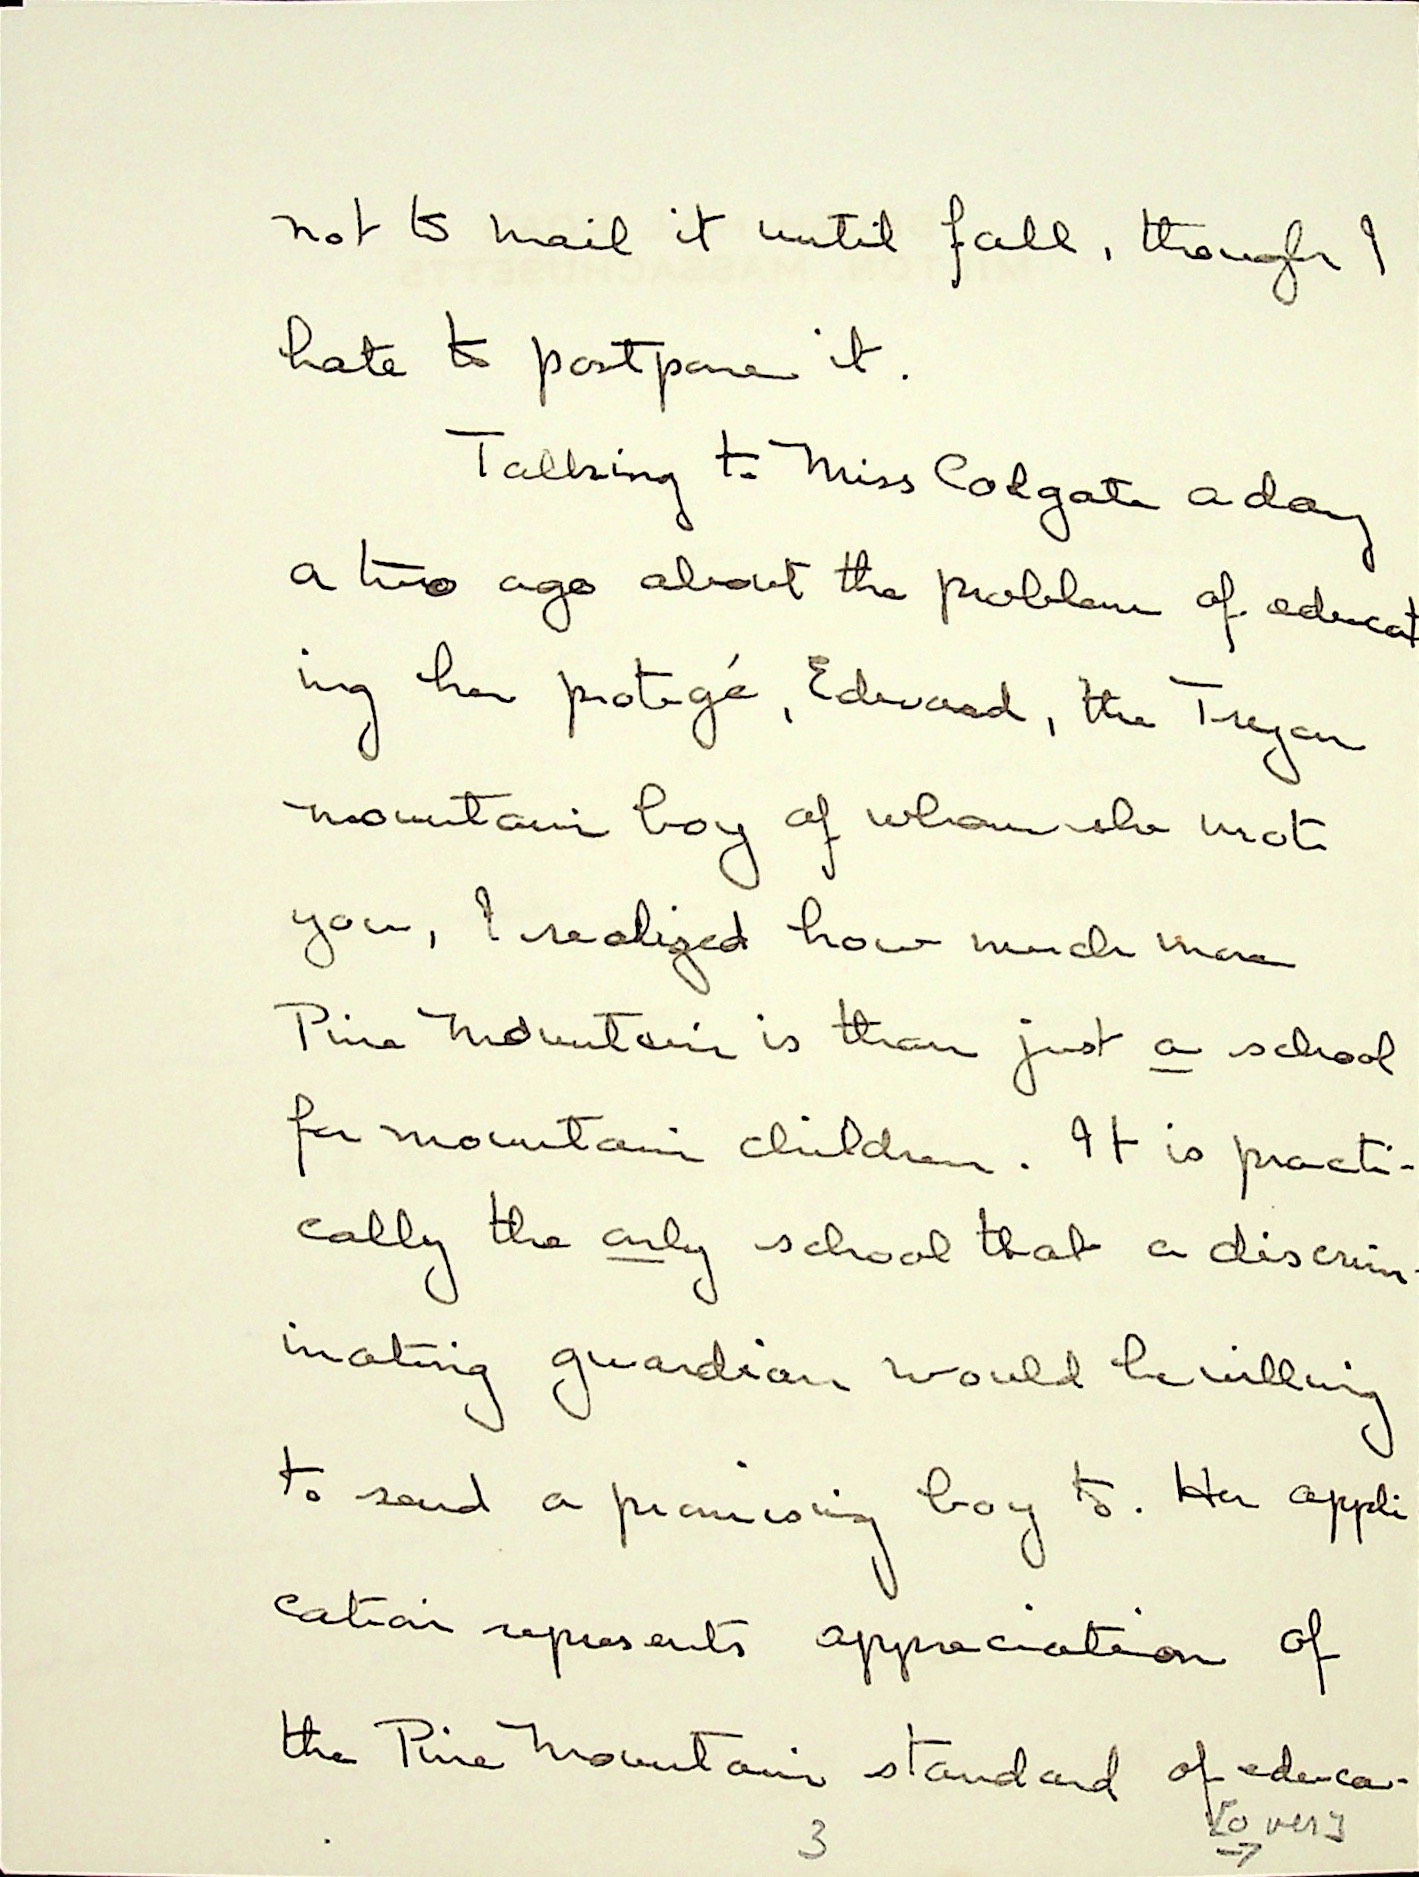 not to mail it until fall, though I
hate to postpone it.
Talking to Miss Colgate a day
or two ago about the problem of educat
ing her protegé, Edward, the Tryon
mountain boy of whom she wrote
you, I realized how much more
Pine Mountain is than just a school
for mountain children. It is practi-
cally the only school that a discrim-
inating guardian would be willing
to send a promising boy to. Her appli
cation represents appreciation of
the Pine Mountain standard of educa-
3 [over]
→